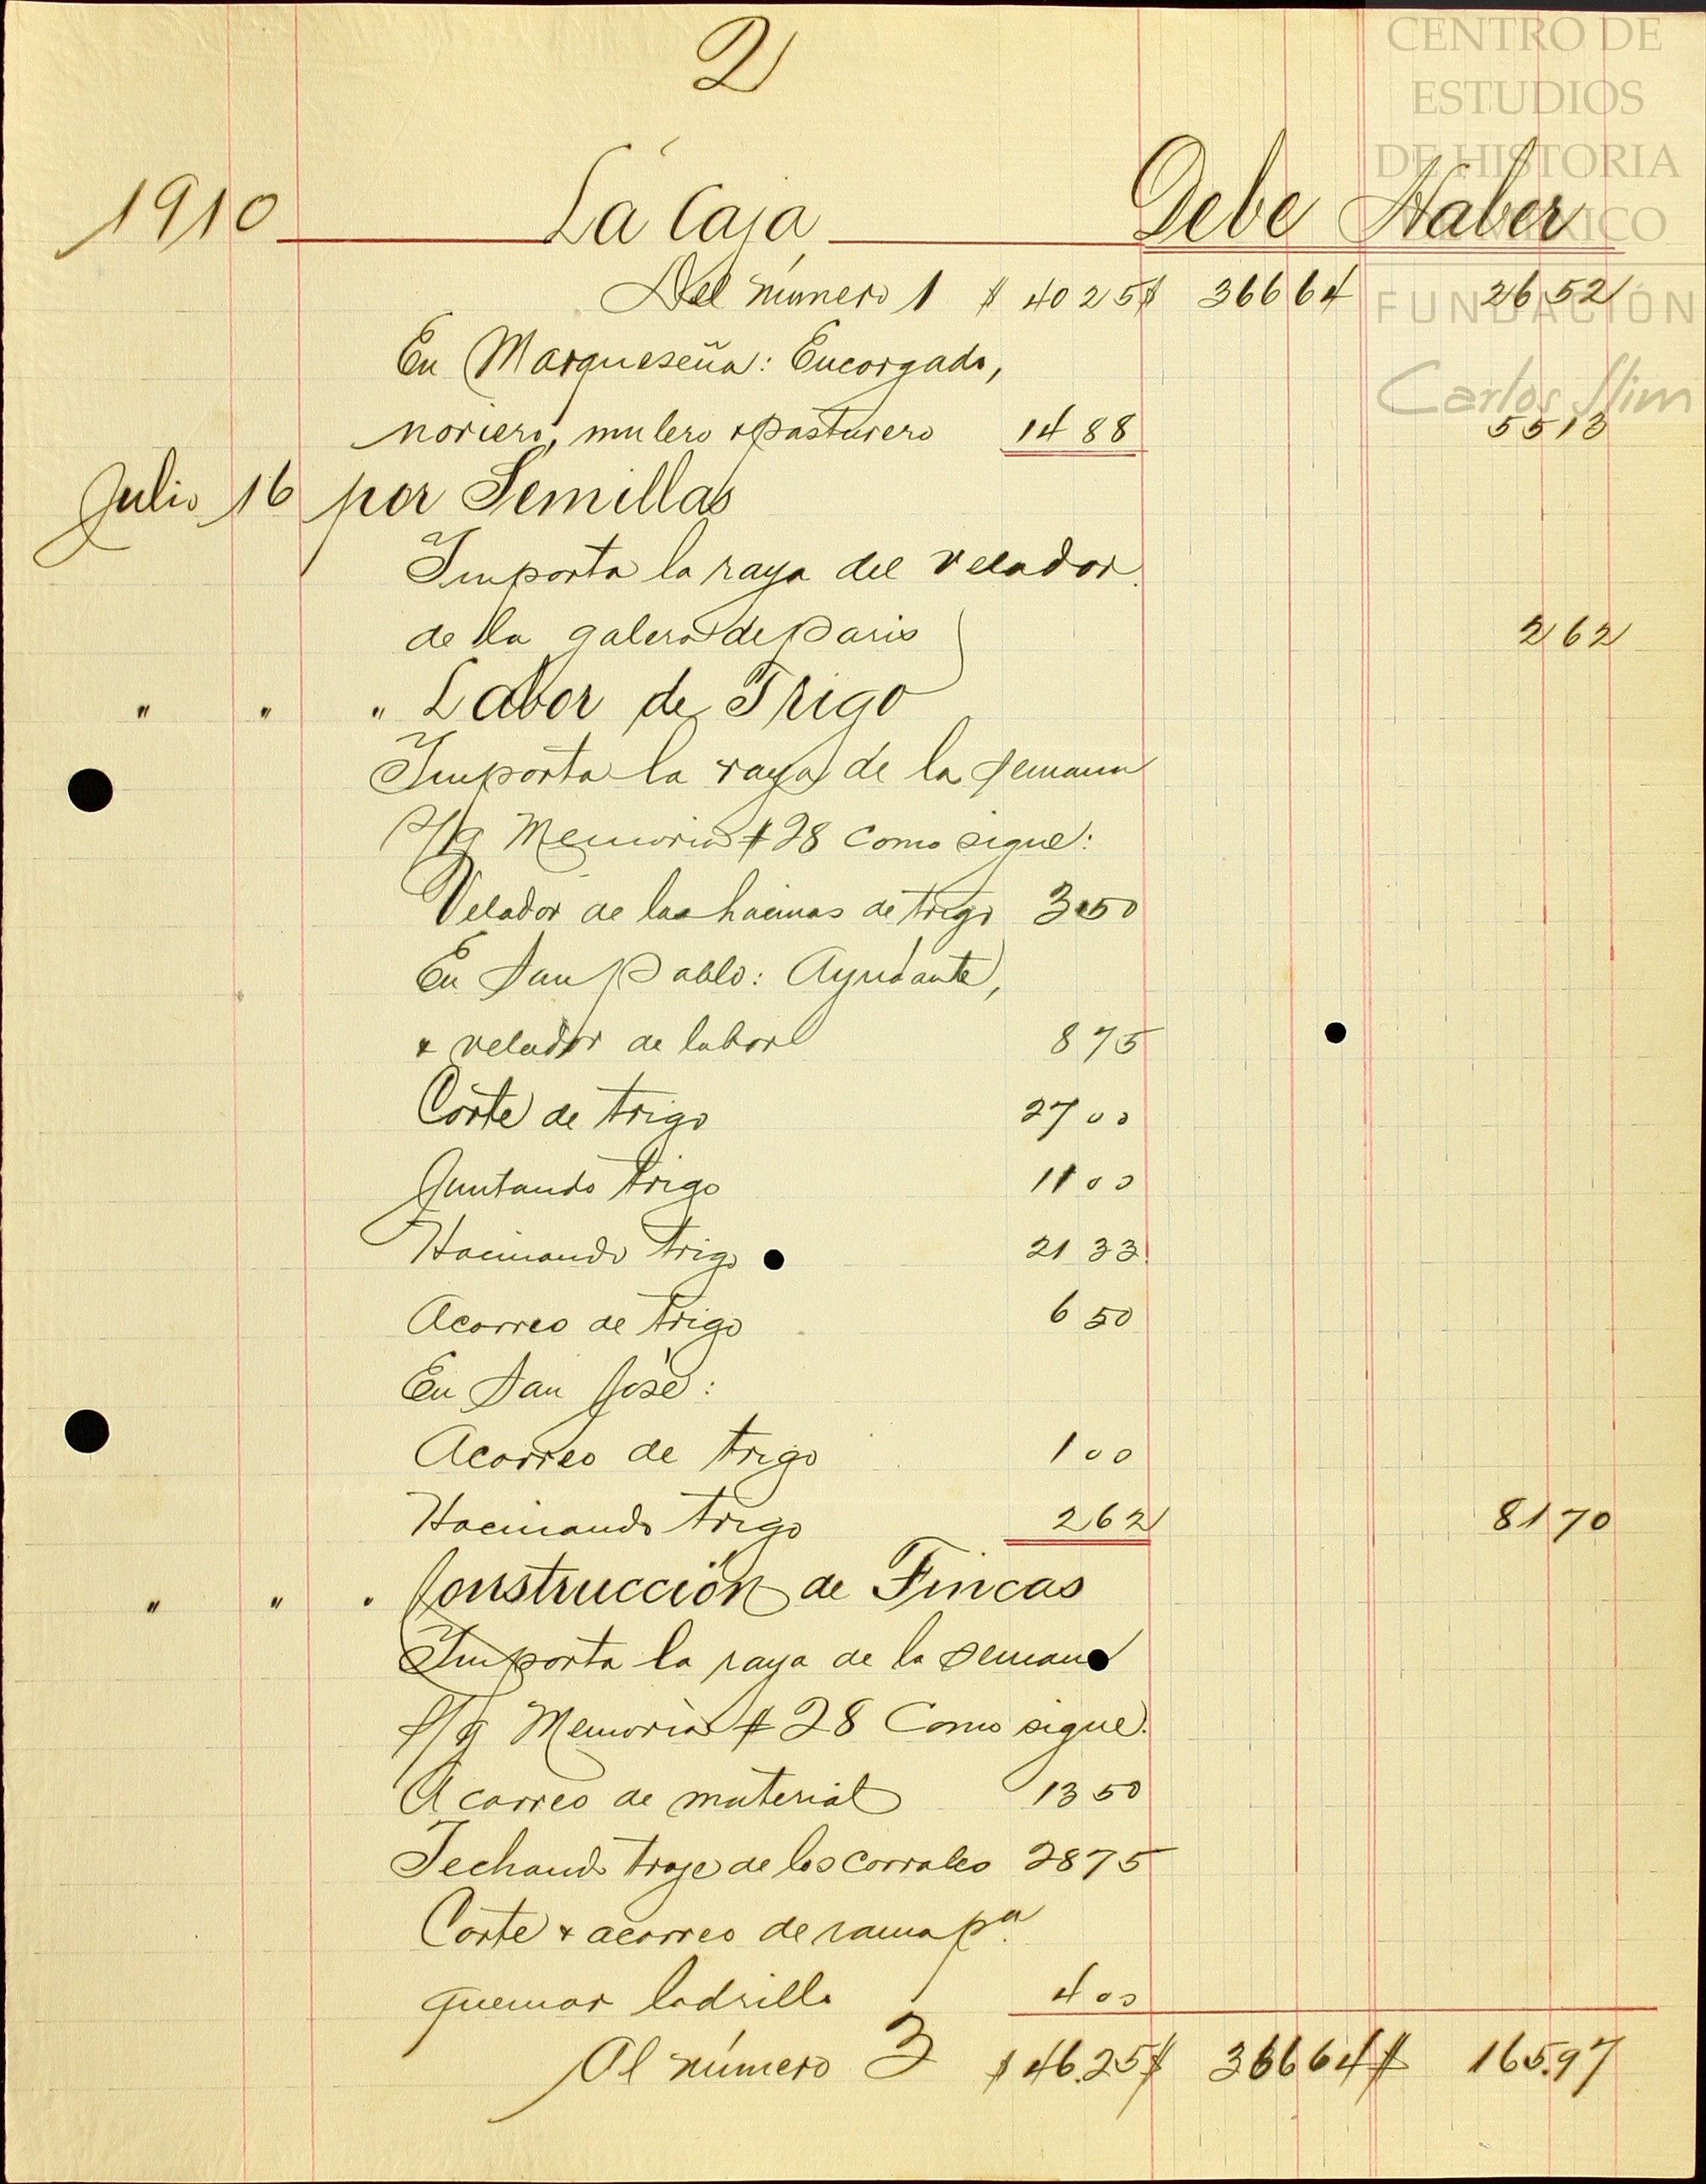 2
CENTRO DE
ESTUDIOS
DE HISTORIA
DE MÉXICO
FUNDACIÓN
Carlos Slim
1910 La Caja Debe Haber
Del número 1 $ 40 25 $ 366 64 26 52
En Marqueseña: Encargado,
noriero, mulero & pasturero 14 88 55 13
Julio 16 por Semillas
Importa la raya del velador
de la galera de Paris 2 62
" " " Labor de Trigo
Importa la raya de la semana
s/g Memoria # 28 como sigue:
Velador de las hacinas de trigo 3.50
En San Pablo: Ayudante,
& velador de labor 8 75
Corte de trigo 27 00
Juntando trigo 11 00
Hacinando trigo 21 33
Acarreo de trigo 6 50
En San José:
Acarreo de trigo 1 00
Hacinando trigo 2 62 81 70
" " " Construcción de Fincas
Importa la raya de la semana
s/g Memoria # 28 Como sigue.
Acarreo de material 13 50
Techando troje de los corrales 28 75
Corte & acarreo de rama pa.
quemar ladrillo 4 00
Al número 3 $ 46.25 $ 366 64 $ 165.97